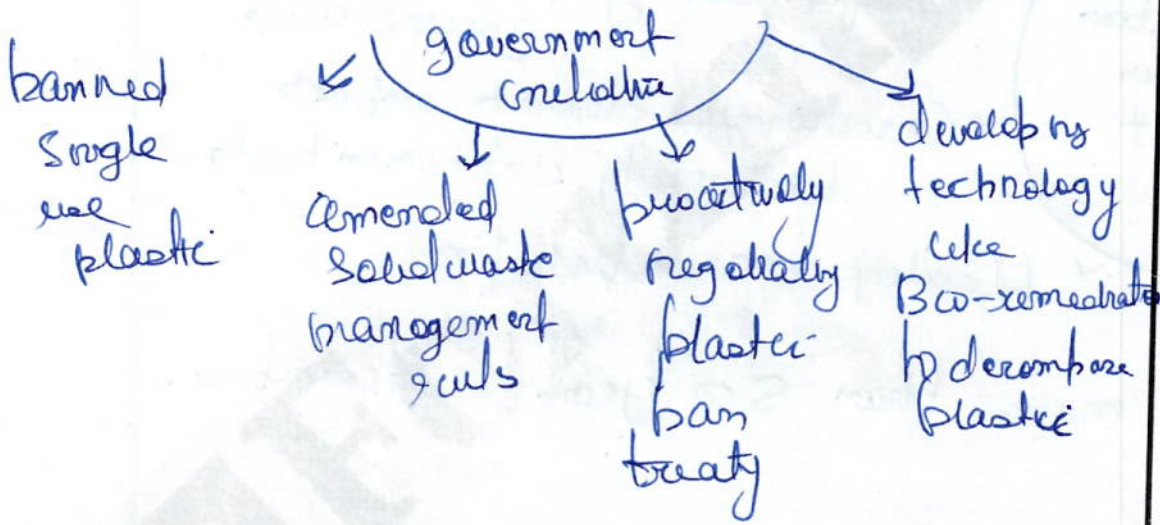 government
initiative
banned
Single
use
plastic
amended
Solid waste
management
rules
proactively
negotiating
plastic
ban
treaty
developing
technology
like
Bio-remediation
to decompose
plastic